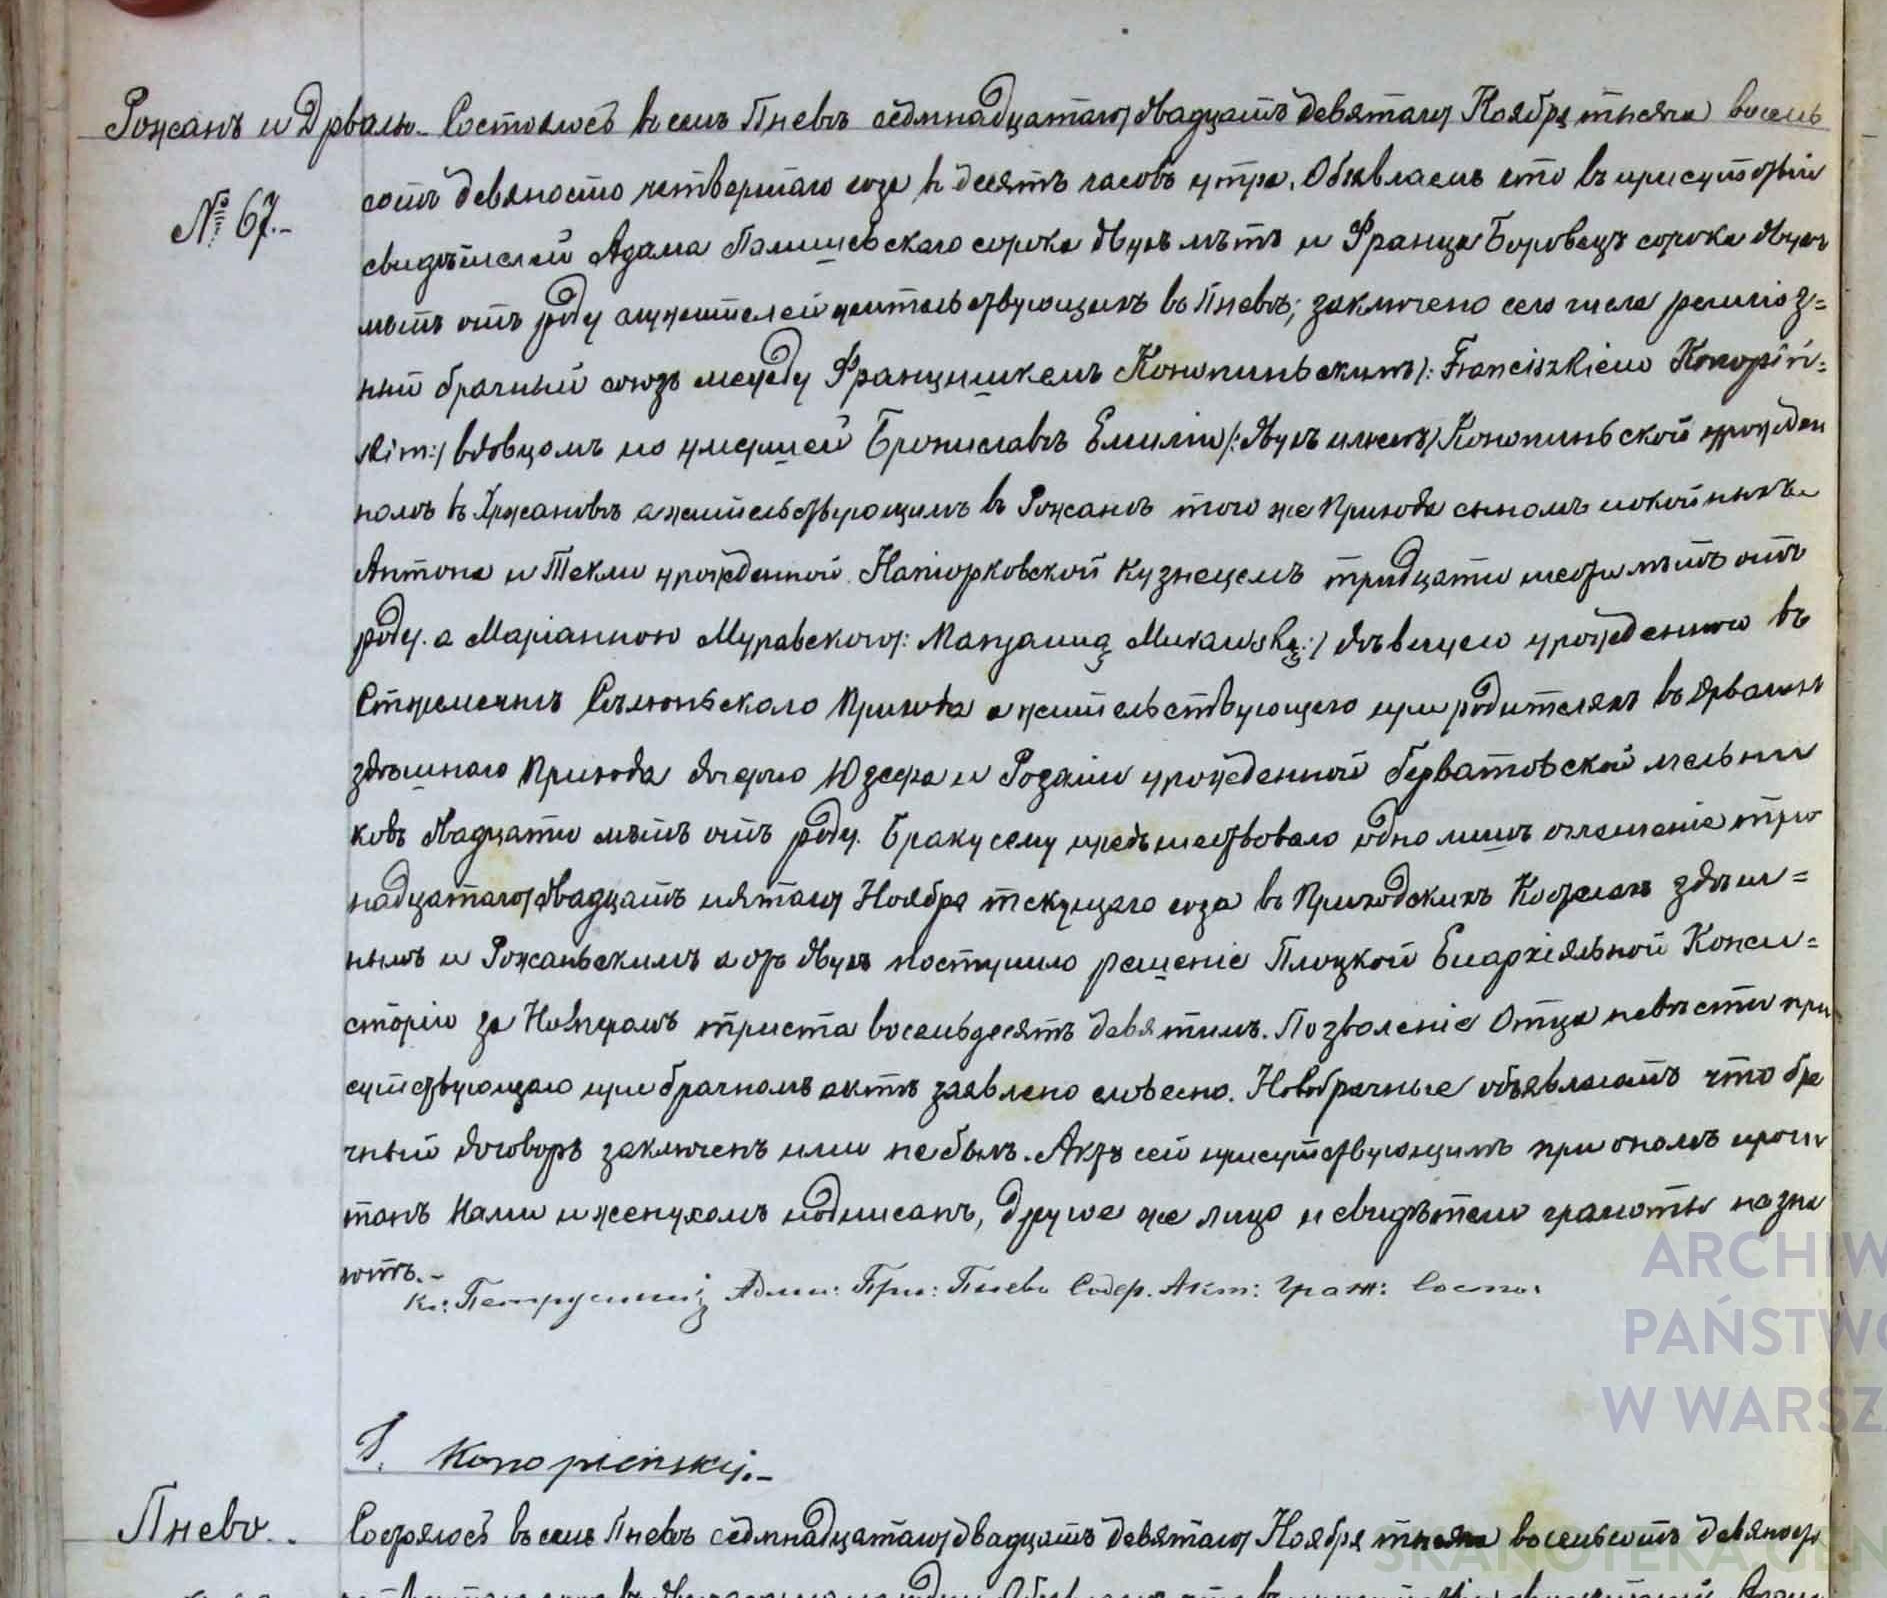 Рожанъ и Дрвалы. Состоялось въ селѣ Пневѣ седмнадцатаго/двадцать девятаго Ноября тысяча восемь
сотъ девяносто четвертаго года въ десять часовъ утра. Объявляемъ что въ присутствіи
№ 67.-
свидѣтелей Адама сорока двухъ лѣтъ и Франца Боровецъ сорока двухъ
лѣтъ отъ роду служителей жительствующихъ въ Пневѣ; заключено сего числа религіоз=
ный брачный союзъ между Францишкемъ Конопиньскимъ /: Franciszkiem Konopiń=
skim :/ вдовцомъ по умершей Брониславѣ Емиліи /: двухъ именъ :/ Конопиньской урожден
номъ въ Хржановѣ а жительствующимъ въ Рожанѣ того же Прихода сыномъ покойныхъ
Антона и Текли урожденной Напіорковской кузнецемъ тридцати шести лѣтъ отъ
роду. а Маріанною Муравского /: Maryanną Murawską :/ дѣвицею урожденного въ
Прихода а жительствующего при родителяхъ въ Дрвалахъ
здѣшнаго Прихода дочерью Юзефа и Розаліи урожденной Герватовской мельни
ковъ двадцати лѣтъ отъ роду. Браку сему предшествовало одно лишъ оглашеніе три
надцатаго/двадцать пятаго Ноября текущаго года въ Приходскихъ Костелахъ здѣш=
нымъ и Рожаньскимъ а отъ двухъ поступило решеніе Плоцкой Епархіяльной Конси=
сторіи за Нумеромъ триста восемьдесятъ девятымъ. Позволеніе Отца невѣсты при
сутствующаго при брачномъ актѣ заявлено словесно. Новобрачные объявляютъ что бра
чный договоръ заключенъ ими небылъ. Актъ сей присутствующимъ при ономъ прочи
танъ Нами и женихомъ подписанъ, другые же лица и свидѣтели грамоты незна
ютъ.-
Кс: Адми: При: Пнево Содер. Акт: Граж: Состо:
F. Konopieński.-
Пнево.. Состоялось въ селѣ Пневѣ седмнадцатаго/двадцать девятаго Ноября тысяча восемьсотъ девяносто